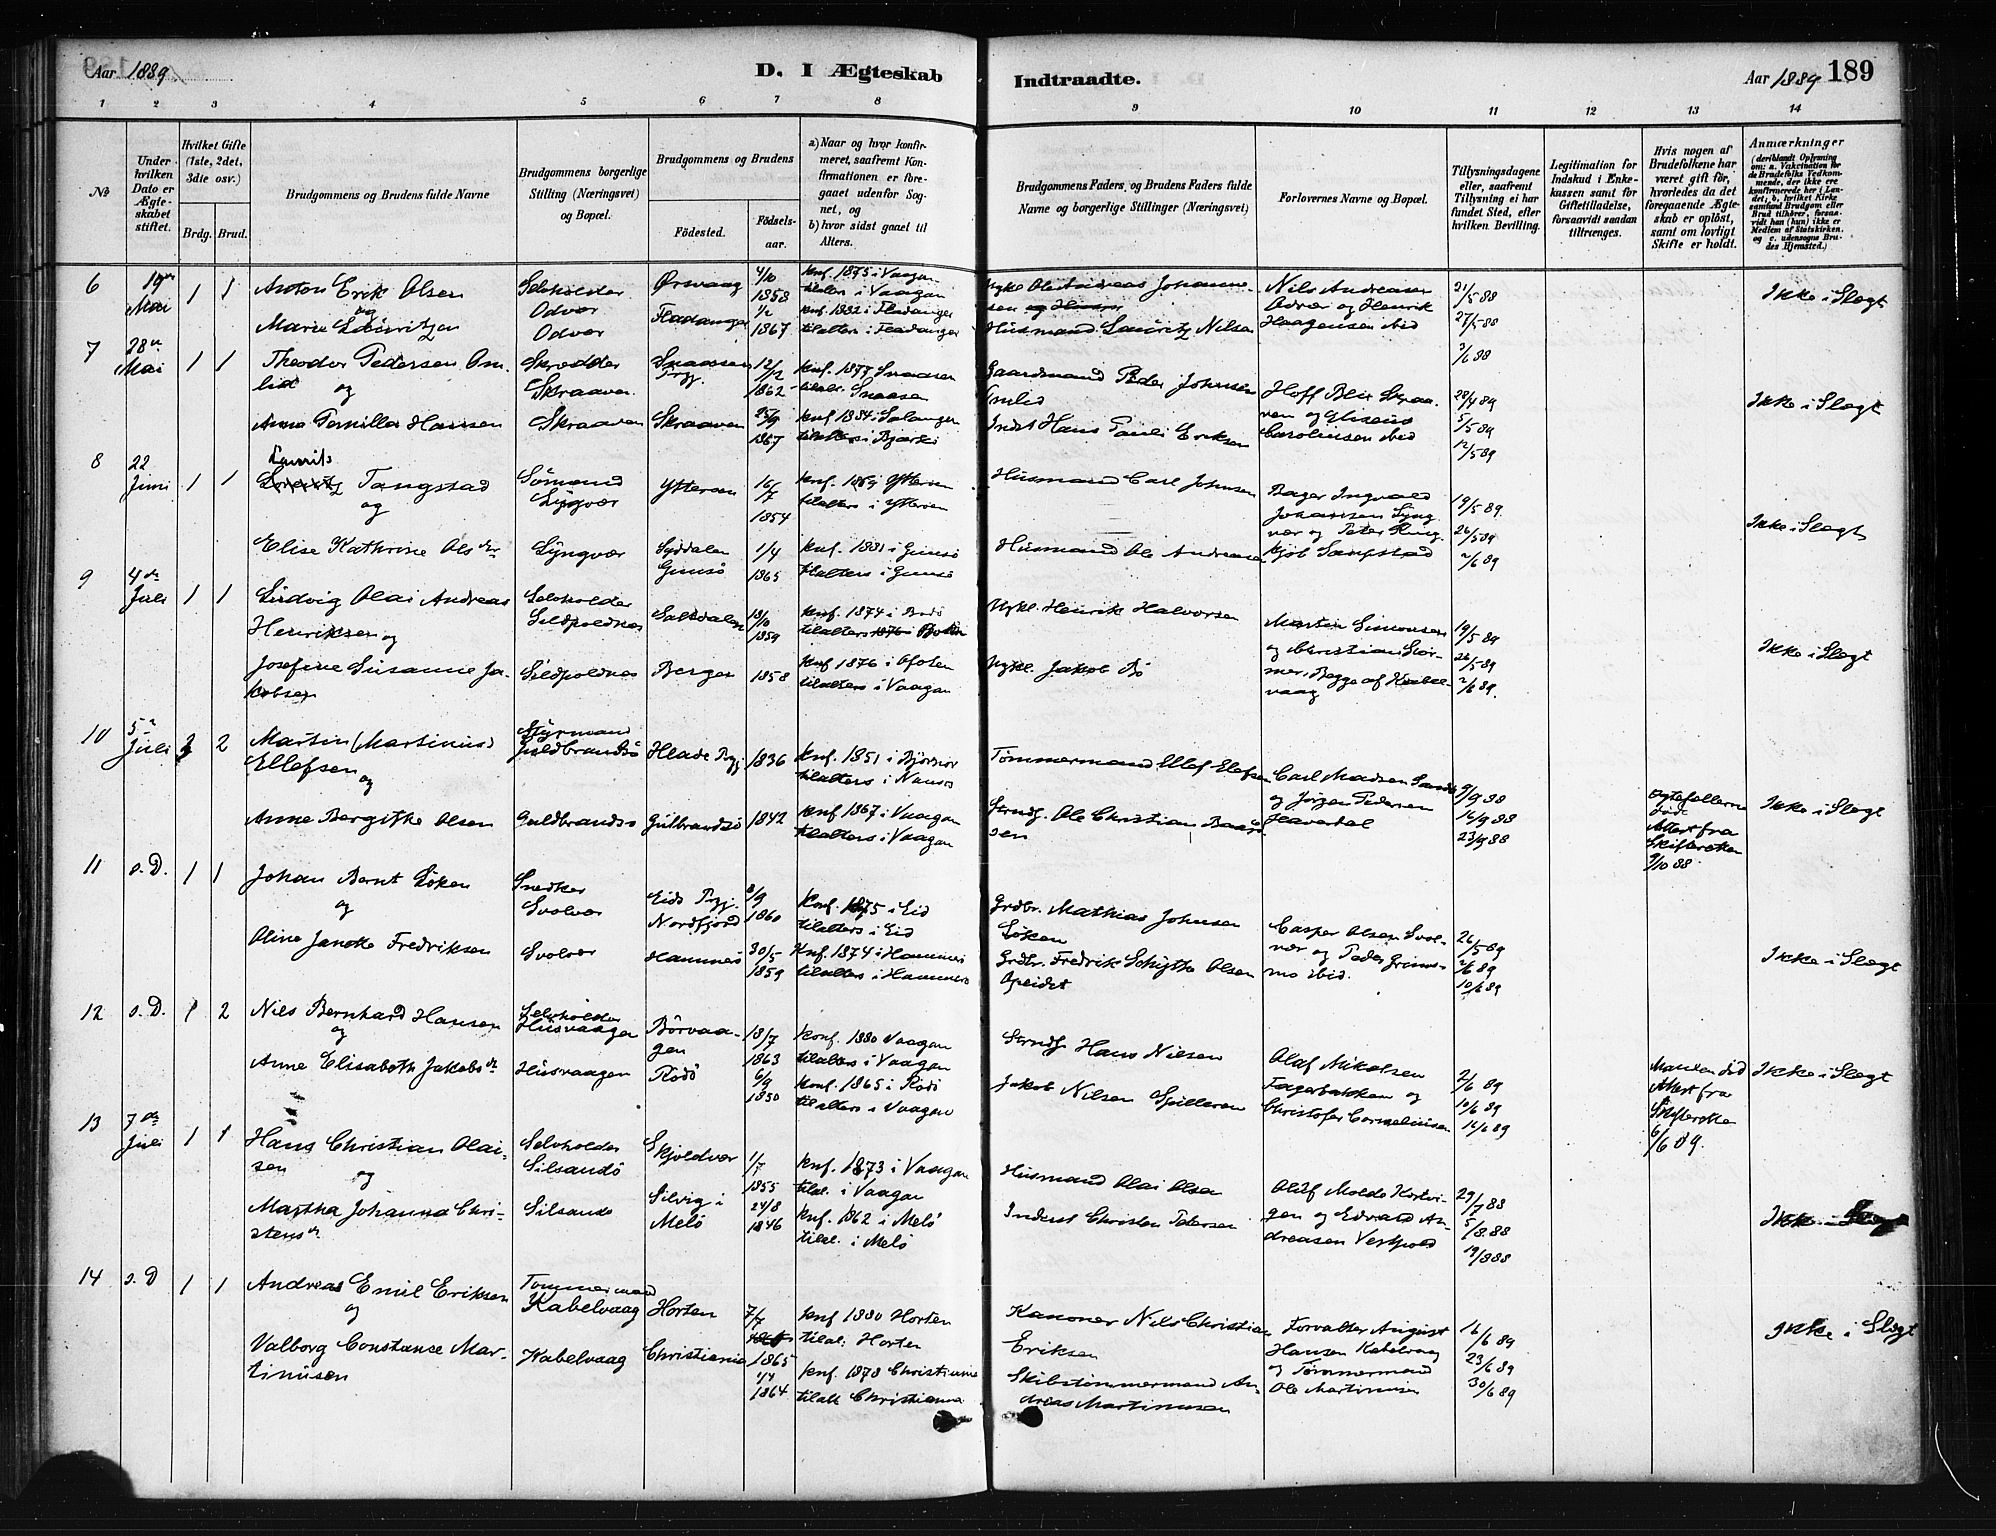 Aar 1889.
D. I Ægteskab
Indtraadte.
Aar 1889
189
1 2 3 4 5 6 7 8 9 10 11 12 13 14
No
Under hvilken Dato er Ægteskabet stiftet.
Hvilket Gifte (1ste, 2det, 3die osv.)
Brdg. Brud.
Brudgommens og Brudens fulde Navne
Brudgommens borgerlige Stilling (Næringsvei) og Bopæl.
Brudgommens og Brudens
Födested.
Födselsaar.
a) Naar og hvor konfirmeret, saafremt Konfirmationen er foregaaet udenfor Sognet, og
b) hvor sidst gaaet til Alters.
Brudgommens Faders, og Brudens Faders fulde Navne og borgerlige Stillinger (Næringsvei)
Forlovernes Navne og Bopæl.
Tillysningsdagene eller, saafremt Tillysning ei har fundet Sted, efter hvilken Bevilling.
Legitimation for Indskud i Enkekassen samt for Giftetilladelse, forsaavidt saadan tiltrænges.
Hvis nogen af Brudefolkene har været gift för, hvorledes da det foregaaende Ægteskab er oplöst, samt om lovligt Skifte er holdt.
Anmærkninger
6 Mai 1 1 Anton Erik Olsen
Selvholder Odvær
Ørsvaag 4/10 1858
knf. 1875 i Vaagan
tilalters i Vaagan
og
Marie Lauritzen
Odvær
Fladanger 1/2 1867
knf. 1882 i Fladanger
tilalters i Fladanger
Husmand Lauritz Nilsen
Nils Andreasen
Odvær og Henrik
Haagensen ibid
21/5 88
27/5 88
3/6 88
Ikke i Slægt
7 28de Mai 1 1 Theodor Pedersen Omlid
og
Skrædder
Skraaven
Snaasen Prgj. 12/12 1862
knf. 1877 Snaasen
tilalt. Snaasen
Gaardmand Peder Johnsen
Omlid
Anne Pernille Hansen
Skraaven Skraaven 25/9 1867
knf 1884 i Salangen
tilalters i Bjarkö
Indst Hans Pauli Eriksen
28/4 89
5/5 89
12/5 89
Ikke i Slægt
8 22 Juni 1 1 Laurits Tangstad
og
Sömand
Lyngvær
Ytteröen 16/7 1854
knf. 1869 Ytteröen
tilalters i Ytteröen
Husmand Carl Johnsen
Elise Kathrine Olsdtr
Lyngvær
Syddalen Gimsö 1/4 1865
knf. 1881 i Gimsö
tilalters i Gimsö
Husmand Ole Andreasen
Bager Ingvald
Johansen Lyngvær og Peter
19/5 89.
26/5 89
2/6 89
Ikke i Slægt
9 4de Juli 1 1 Ludvig Olai Andreas
Henriksen og
Selvholder
Sildpoldnes
Saltdalen 13/10 1859
knf. 1874 i Bodö
tilalters 1876 i Bodin
Nykl. Henrik Halvorsen
Josefine Susanne Jakobsen
Sildpoldnes
Bergen 1858
knf 1876 i Ofoten
tilalters i Vaagan
Nykl. Jakob Bö
Martin Simonsen
og Christian Stormer, Begge af Kabelvaag
19/5 89
26/5 89
2/6 89.
Ikke i Slægt
10 5te Juli 2 Martin (Martinius)
Ellefsen og
Styrmand
Guldbrandsö
Hlade Prgj 1836
knf. 1851 i Björnör
tilalters i Namsos
Tømmermand Ellef Elefsen
Anne Bergithe Olsen
Guldbrandsö Gulbrandsö 1842
knf 1867 i Vaagan
tilalters i Vaagan
Strndf. Ole Christian Baarsen
Carl Madsen Sande
og Jörgen Pedersen
Haverdal
9/9 88
16/9 88
23/9 88
Ægtefællerne
döde
Attest fra
Skifteretten
9/10 88
Ikke i Slægt
11 s. D. 1 1 Johan Bernt Löken
og
Snedker
Svolvær
Eids Prgj.
Nordfjord 8/9 1860
Konf. 1875 i Eid
tilalters i Eid
Grdbr. Mathias Johnsen
Löken
Oline Jancke Fredriksen
Svolvær
Hammerö 30/5 1859
Knf. 1874 i Hammerö
tilalters i Hammerö
Grdbr. Fredrik Schytte Olsen
Opeidet
Casper Olsen Svolvær og Peder Grimsmo ibid.
26/5 89
2/6 89
10/6 89
Ikke i Slægt
12 s. D. 1 2 Nils Bernhard Hansen
og
Selvholder
Husvaagen
Börvaagen 18/7 1863
konf. 1880 Vaagan
tilalters i Vaagan
Strndf. Hans Nielsen
Anne Elisabeth Jakobsdtr
Husvaagen
Rödö 6/9 1850
konf. 1865 i Rödö
tilalters i Vaagan
Jakob Nilsen Spilleren
Olaf Mikalsen
Fagerbakken og
Christofer Corneliussen
2/6 89
10/6 89
16/6 89
Manden död
Attest fra
Skifteretten
6/6 89.
Ikke i Slægt
13 7de Juli 1 1 Hans Christian Olaisen
og
Selvholder
Silsandö
Skjoldvær 1/7 1855
knf. 1873 i Vaagan
tilal. i Vaagan
Husmand Olai Olsen
Martha Johanna Christensdr
Silsandö
Silvig i Melö 24/8 1846
knf. 1862 i Melö
tilal. i Melö
Inderst Christen Petersen
Oluf Molde
og Edvard Andreasen Vestpold
29/7 88
5/8 88
12/8 88
Ikke i Slægt
14 s. D 1 1 Andreas Emil Eriksen
og
Tømmermand
Kabelvaag
Horten 7/7 1865
knf 1880 Horten
tilal. Horten
Kanoner Nils Christian
Eriksen
Valborg Constanse Martinusen
Kabelvaag
Christiania 1/4 1864
knf. 1878 Christiania
tilalt Christiania
Skibstømmermand Andreas Martinusen
Forvalter August
Hansen Kabelvaag
og Tømmermand
Ole Martinusen
16/6 89
23/6 89
30/6 89
Ikke i Slægt